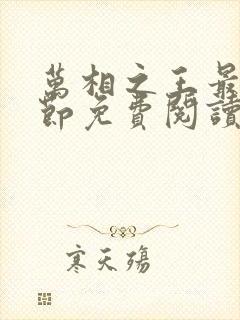 萬相之王最
節免費閱讀
寒天殤